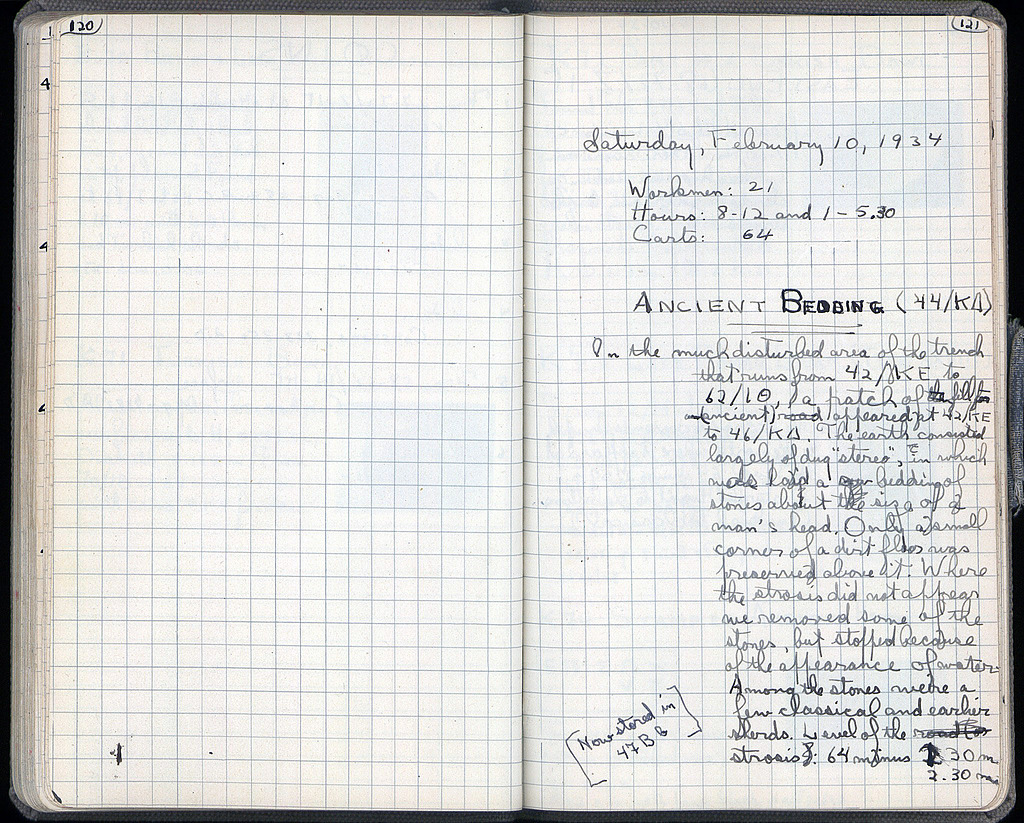 120
121
Saturday, February 10, 1934
Workmen: 21
Hours: 8-12 and 1-5.30
Carts: 64
ANCIENT BEDDING (44/ΚΔ)
In the much disturbed area of the trench
that runs from 42/ΚΕ to
62/ΙΘ, a patch of
ancient road appeared at 42/ΚΕ
to 46/ΚΔ. The earth consisted
largely of dug "stereo", in which
was laid a bedding of
stones about the size of a
man's head. Only a small
corner of a dirt floor was
preserved above it. Where
the strosis did not appear
we removed some of the
stones, but stopped because
of the appearance of water.
Among the stones were a
few classical and earlier
sherds. Level of the road
strosis: 64 minus 30 m
2.30 m
[Now stored in
47 B 6]